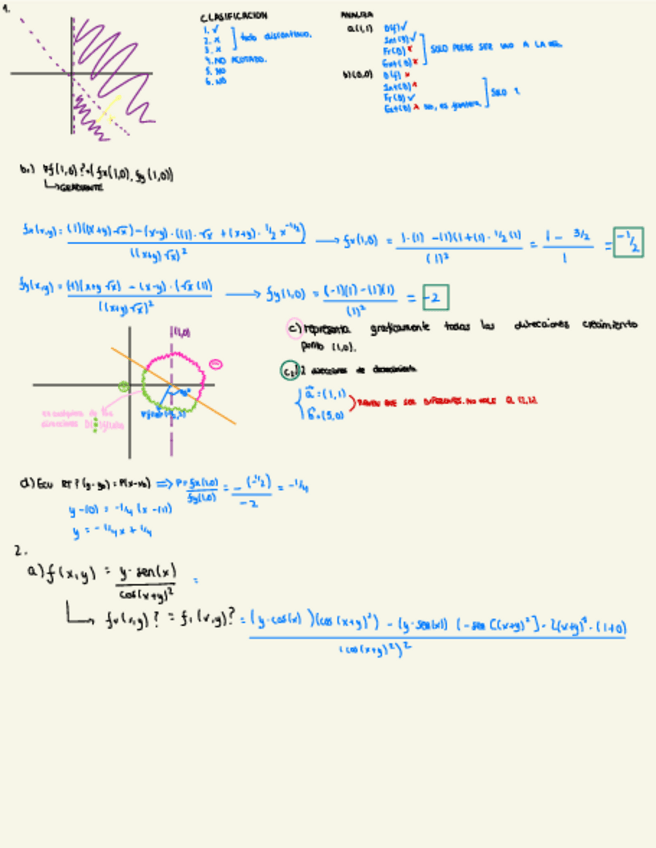 1.
CLASIFICACION
1. ✓
2. x
3. x
] todo discontinuo.
4. NO ACOTADO.
5. NO
6. NO
ANALIZA
a(1,1) D(f) ✓
Int(D) ✓
Fr(D) x
Ext(D) x
] SOLO PUEDE SER UNO A LA VEZ.
b)(0,0) D(f) x
Int(D) x
Fr(D) ✓
Ext(D) x no, es frontera
] SOLO 1
b.) ∇f(1,0)? = (fx(1,0), fy(1,0))
↳GRADIENTE
fx(x,y) = (1)((x+y)·√x) - (x-y)·((1)·√x + (x+y)·1/2 x^-1/2) / ((x+y)·√x)² → fx(1,0) = 1·(1) - (1)(1+(1)·1/2(1)) / (1)² = 1 - 3/2 / 1 = -1/2
fy(x,y) = (-1)(x+y √x) - (x-y)·(√x (1)) / ((x+y)·√x)² → fy(1,0) = (-1)(1) - (1)(1) / (1)² = -2
(1,0)
c) representa graficamente todas las direcciones crecimiento
punto (1,0).
c2) 2 direcciones de decrecimiento
a = (1,1)
b = (5,0)
) TIENEN QUE SER DIFERENTES. NO VALE
d) Ecu RT? (y-y0) = P(x-x0) ⟹ P = fx(1,0) / fy(1,0) = -(-1/2) / -2 = -1/4
y-(0) = -1/4 (x-(1))
y = -1/4 x + 1/4
2.
a) f(x,y) = y·sen(x) / cos(x+y)² =
↳ fx(x,y)? = f1(x,y)? = (y·cos(x))(cos(x+y)²) - (y·sen(x)) (-sen[(x+y)²]·2(x+y)·(1+0) / (cos(x+y)²)²